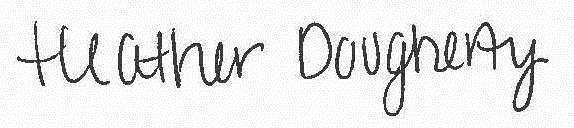 Heather Dougherty